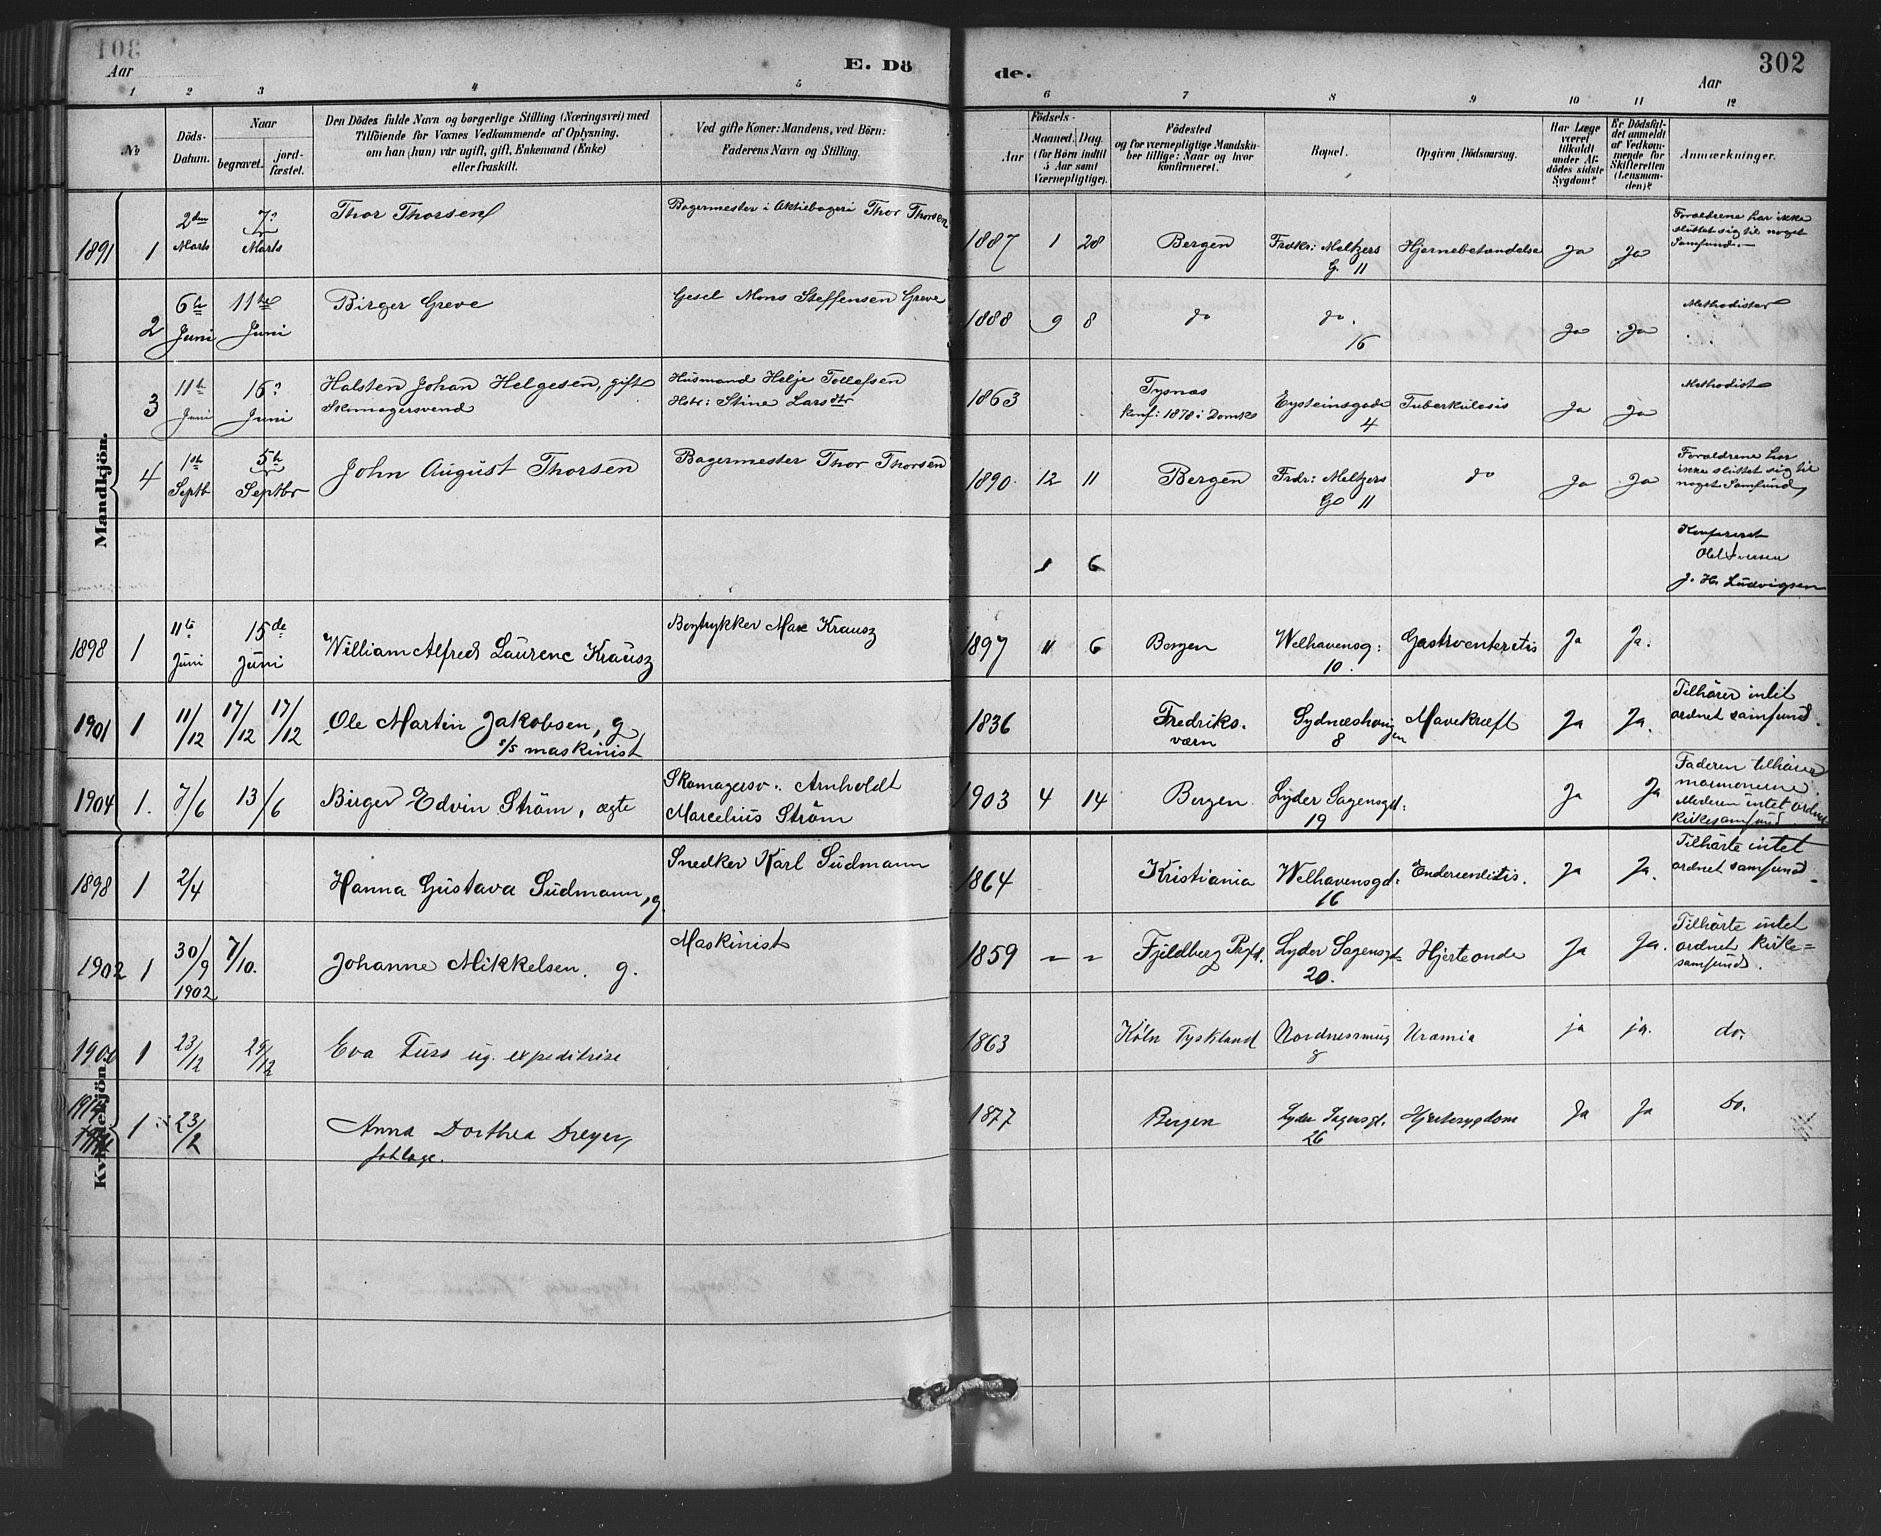 301
302
Aar
E. Dö
de.
Aar
1 2 3 4 5 6 7 8 9 10 11 12
No
Döds-Datum.
Naar
begravet.
jordfæstet.
Den Dödes fulde Navn og borgerlige Stilling (Næringsvei) med
Tilföiende for Voxnes Vedkommende af Oplysning,
om han (hun) var ugift, gift, Enkemand (Enke)
eller fraskilt.
Ved gifte Koner: Mandens, ved Börn:
Faderens Navn og Stilling.
Födsels-
Aar
Maaned.
Dag.
(for Börn indtil
5 Aar samt
Værnepligtige).
Födested
og for værnepligtige Mandskaber tillige: Naar og hvor
konfirmeret.
Bopæl.
Opgiven Dödsaarsag.
Har Læge
været
tilkaldt
under Afdödes sidste
Sygdom?
Er Dödsfaldet anmeldt
af Vedkommende for
Skifteretten
(Lensmanden)?
Anmærkninger.
Mandkjön.
1891 1 2den Marts 7de Marts Thor Thorsen Bagermester i Aktiebageri Thor Thorsen 1887 1 28 Bergen Fredr: Meltzers G. 11 Hjernebetændelse Ja Ja Foreldrene har ikke sluttet sig til noget Samfund.
2 6te Juni 11te Juni Birger Greve Gesel Mons Steffensen Greve 1888 9 8 do do. 16 Ja Ja Methodister
3 11te Juni 16de Juni Halsten Johan Helgesen, gift Skomagersvend Husmand Helje Tollefsen Hstr: Stine Larsdtr 1863 Tysnæs konf: 1878 i Domks Eysteinsgade 4 Tuberkulosis Ja Ja Methodist
4 1ste Septb 5te Septbr John August Thorsen Bagermester Thor Thorsen 1890 12 11 Bergen Fredr: Meltzers G 11 do Ja Ja Foreldrene har ikke sluttet sig til noget Samfund
1 6 Konfereret
J. H. Ludvigsen
1898 1 11te Juni 15de Juni William Alfred Laurenc Krausz Bogtrykker Max Krausz 1897 11 6 Bergen Welhavensg: 10. Gastroenteritis Ja Ja.
1901 1 11/12 17/12 17/12 Ole Martin Jakobsen, g s/s maskinist 1836 Fredriksværn Sydnæshaugen 8 Mavekræft Ja Ja. Tilhører intet ordnet samfund.
1904 1. 7/6 13/6 Birger Edvin Ström, ægte Skomagersv. Arnholdt Marcelius Ström 1903 4 14 Bergen Lyder Sagensgd: 19 Ja Ja Faderen tilhører mormonerne. Moderen intet ordnet kirkesamfund
Kvindekjön.
1898 1 2/4 Hanna Gustava Sudmann, g. Snedker Karl Sudmann 1864 Kristiania Welhavensgd: 16 Ja Ja. Tilhørte intet ordnet samfund.
1902 1 30/9 1902 7/10. Johanne Mikkelsen. g. Maskinist 1859 " " Fjeldberg Prgd. Lyder Sagensgd= 20. Hjerteonde Ja Ja. Tilhørte intet ordnet kirke=samfund.
1 23/12 29/12 Eva Fuss ug. expeditrise 1863 Köln Tyskland Nordnessmug 8 Uræmia ja ja. do.
1 23/2 Anna Dorthea Dreyer, 1877 Bergen Lyder Sagensgt. 26 Hjertesygdom Ja Ja Do.